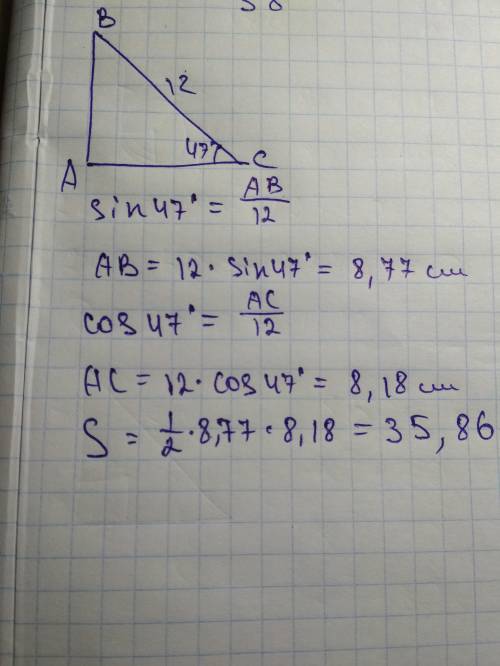 B
12
47°
A
C
sin 47° = AB/12
AB = 12 · sin 47° = 8,77 см
cos 47° = AC/12
AC = 12 · cos 47° = 8,18 см
S = 1/2 · 8,77 · 8,18 = 35,86